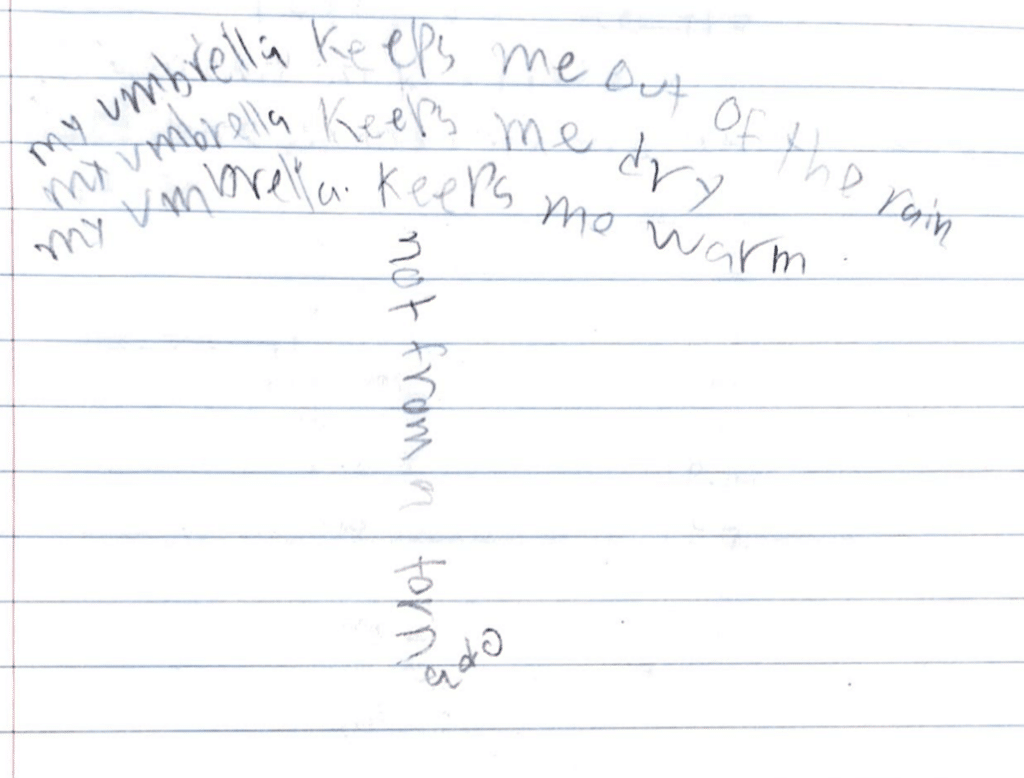 my umbrella keeps me out of the rain
my umbrella keeps me dry
my umbrella. keeps me warm.
not from a tornado